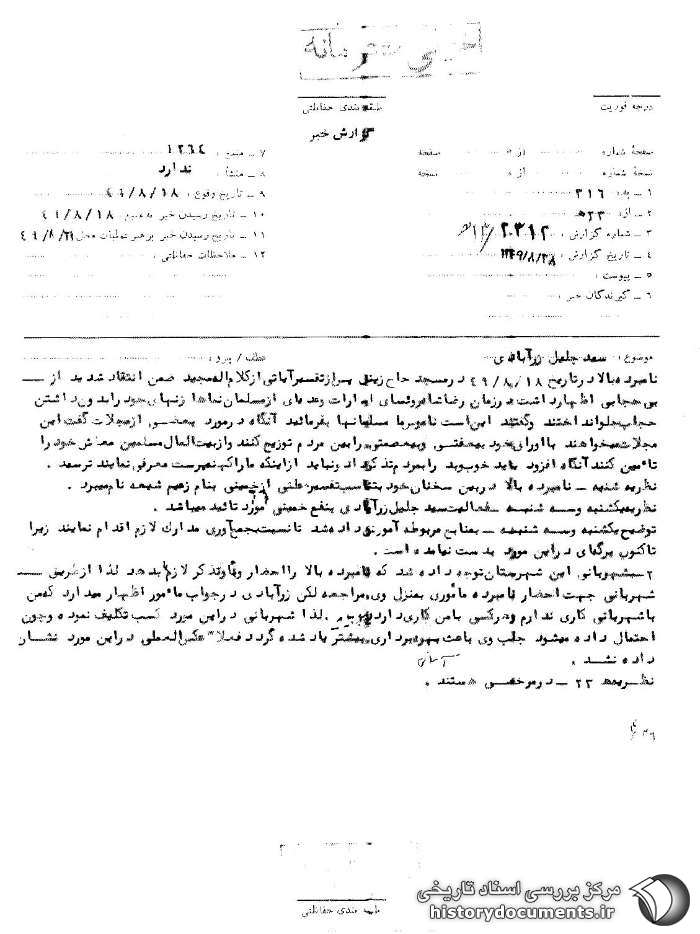 خیلی محرمانه
درجه فوریت
طبقه بندی حفاظتی
گزارش خبر
صفحهٔ شماره از صفحه
نسخهٔ شماره از نسخه
۱ ـ به : ۳۱۶
۲ ـ از : ۲۳ ه
۳ ـ شماره گزارش : ۲۰۳۱۲ / ه ۱۲
۴ ـ تاریخ گزارش : ۱۳۴۹/۸/۲۸
۵ ـ پیوست :
۶ ـ گیرندگان خبر :
۷ ـ منبع : ۱۲۶۴
۸ ـ منشأ : ندارد
۹ ـ تاریخ وقوع : ۴۹/۸/۱۸
۱۰ ـ تاریخ رسیدن خبر به منبع : ۴۹/۸/۱۸
۱۱ ـ تاریخ رسیدن خبر برهبر عملیات محل : ۴۹/۸/۲۱
۱۲ ـ ملاحظات حفاظتی :
موضوع : سید جلیل زرآبادی
عطف / پیرو :
نامبرده بالا در تاریخ ۴۹/۸/۱۸ در مسجد حاج زینل پس از تفسیر آیاتی از کلام اله مجید ضمن انتقاد شدید از
بی حجابی اظهار داشت در زمان رضا شاه روسای ادارات وعده‌ای از مسلمان نماها زنهای خود را بدون داشتن
حجاب جلو انداختند وگفتند این است ناموس ما مسلمانها بفرمائید آنگاه در مورد بعضی از مجلات گفت این
مجلات میخواهند با اوراق خود بیعفتی وبیعصمتی را بین مردم توزیع کنند واز بیت المال مسلمین معاش خود را
تامین کنند آنگاه افزود باید خوب وبد را بمردم تذکر داد ونباید از اینکه ما را کهنه پرست معرفی نمایند ترسید .
نظریه شنبه ـ نامبرده بالا در بین سخنان خود بمناسب تفسیر علنی از خمینی بنام زعیم شیعه نام میبرد .
نظریه یکشنبه وسه شنبه ـ فعالیت سید جلیل زرآبادی بنفع خمینی مورد تائید میباشد .
توضیح یکشنبه وسه شنبه ـ بمنابع مربوطه آموزش داده شد تا نسبت بجمع آوری مدارک لازم اقدام نمایند زیرا
تاکنون برگهای در این مورد بدست نیامده است .
۲ ـ بشهربانی این شهرستان توجه داده شد که نامبرده بالا را احضار وباو تذکر لازم بدهد لذا از طریق
شهربانی جهت احضار نامبرده مأموری بمنزل وی مراجعه لکن زرآبادی در جواب مامور اظهار میدارد که من
با شهربانی کاری ندارم وهرکس با من کاری دارد بیاید . لذا شهربانی در این مورد کسب تکلیف نموده وچون
احتمال داده میشود جلب وی باعث بهره برداری بیشتر یاد شده گردد فعلاً عکس العملی در این مورد نشان
داده نشد .
نظریه ۲۳ ه ـ در مرخصی هستند .
طبقه بندی حفاظتی
مرکز بررسی اسناد تاریخی
historydocuments.ir